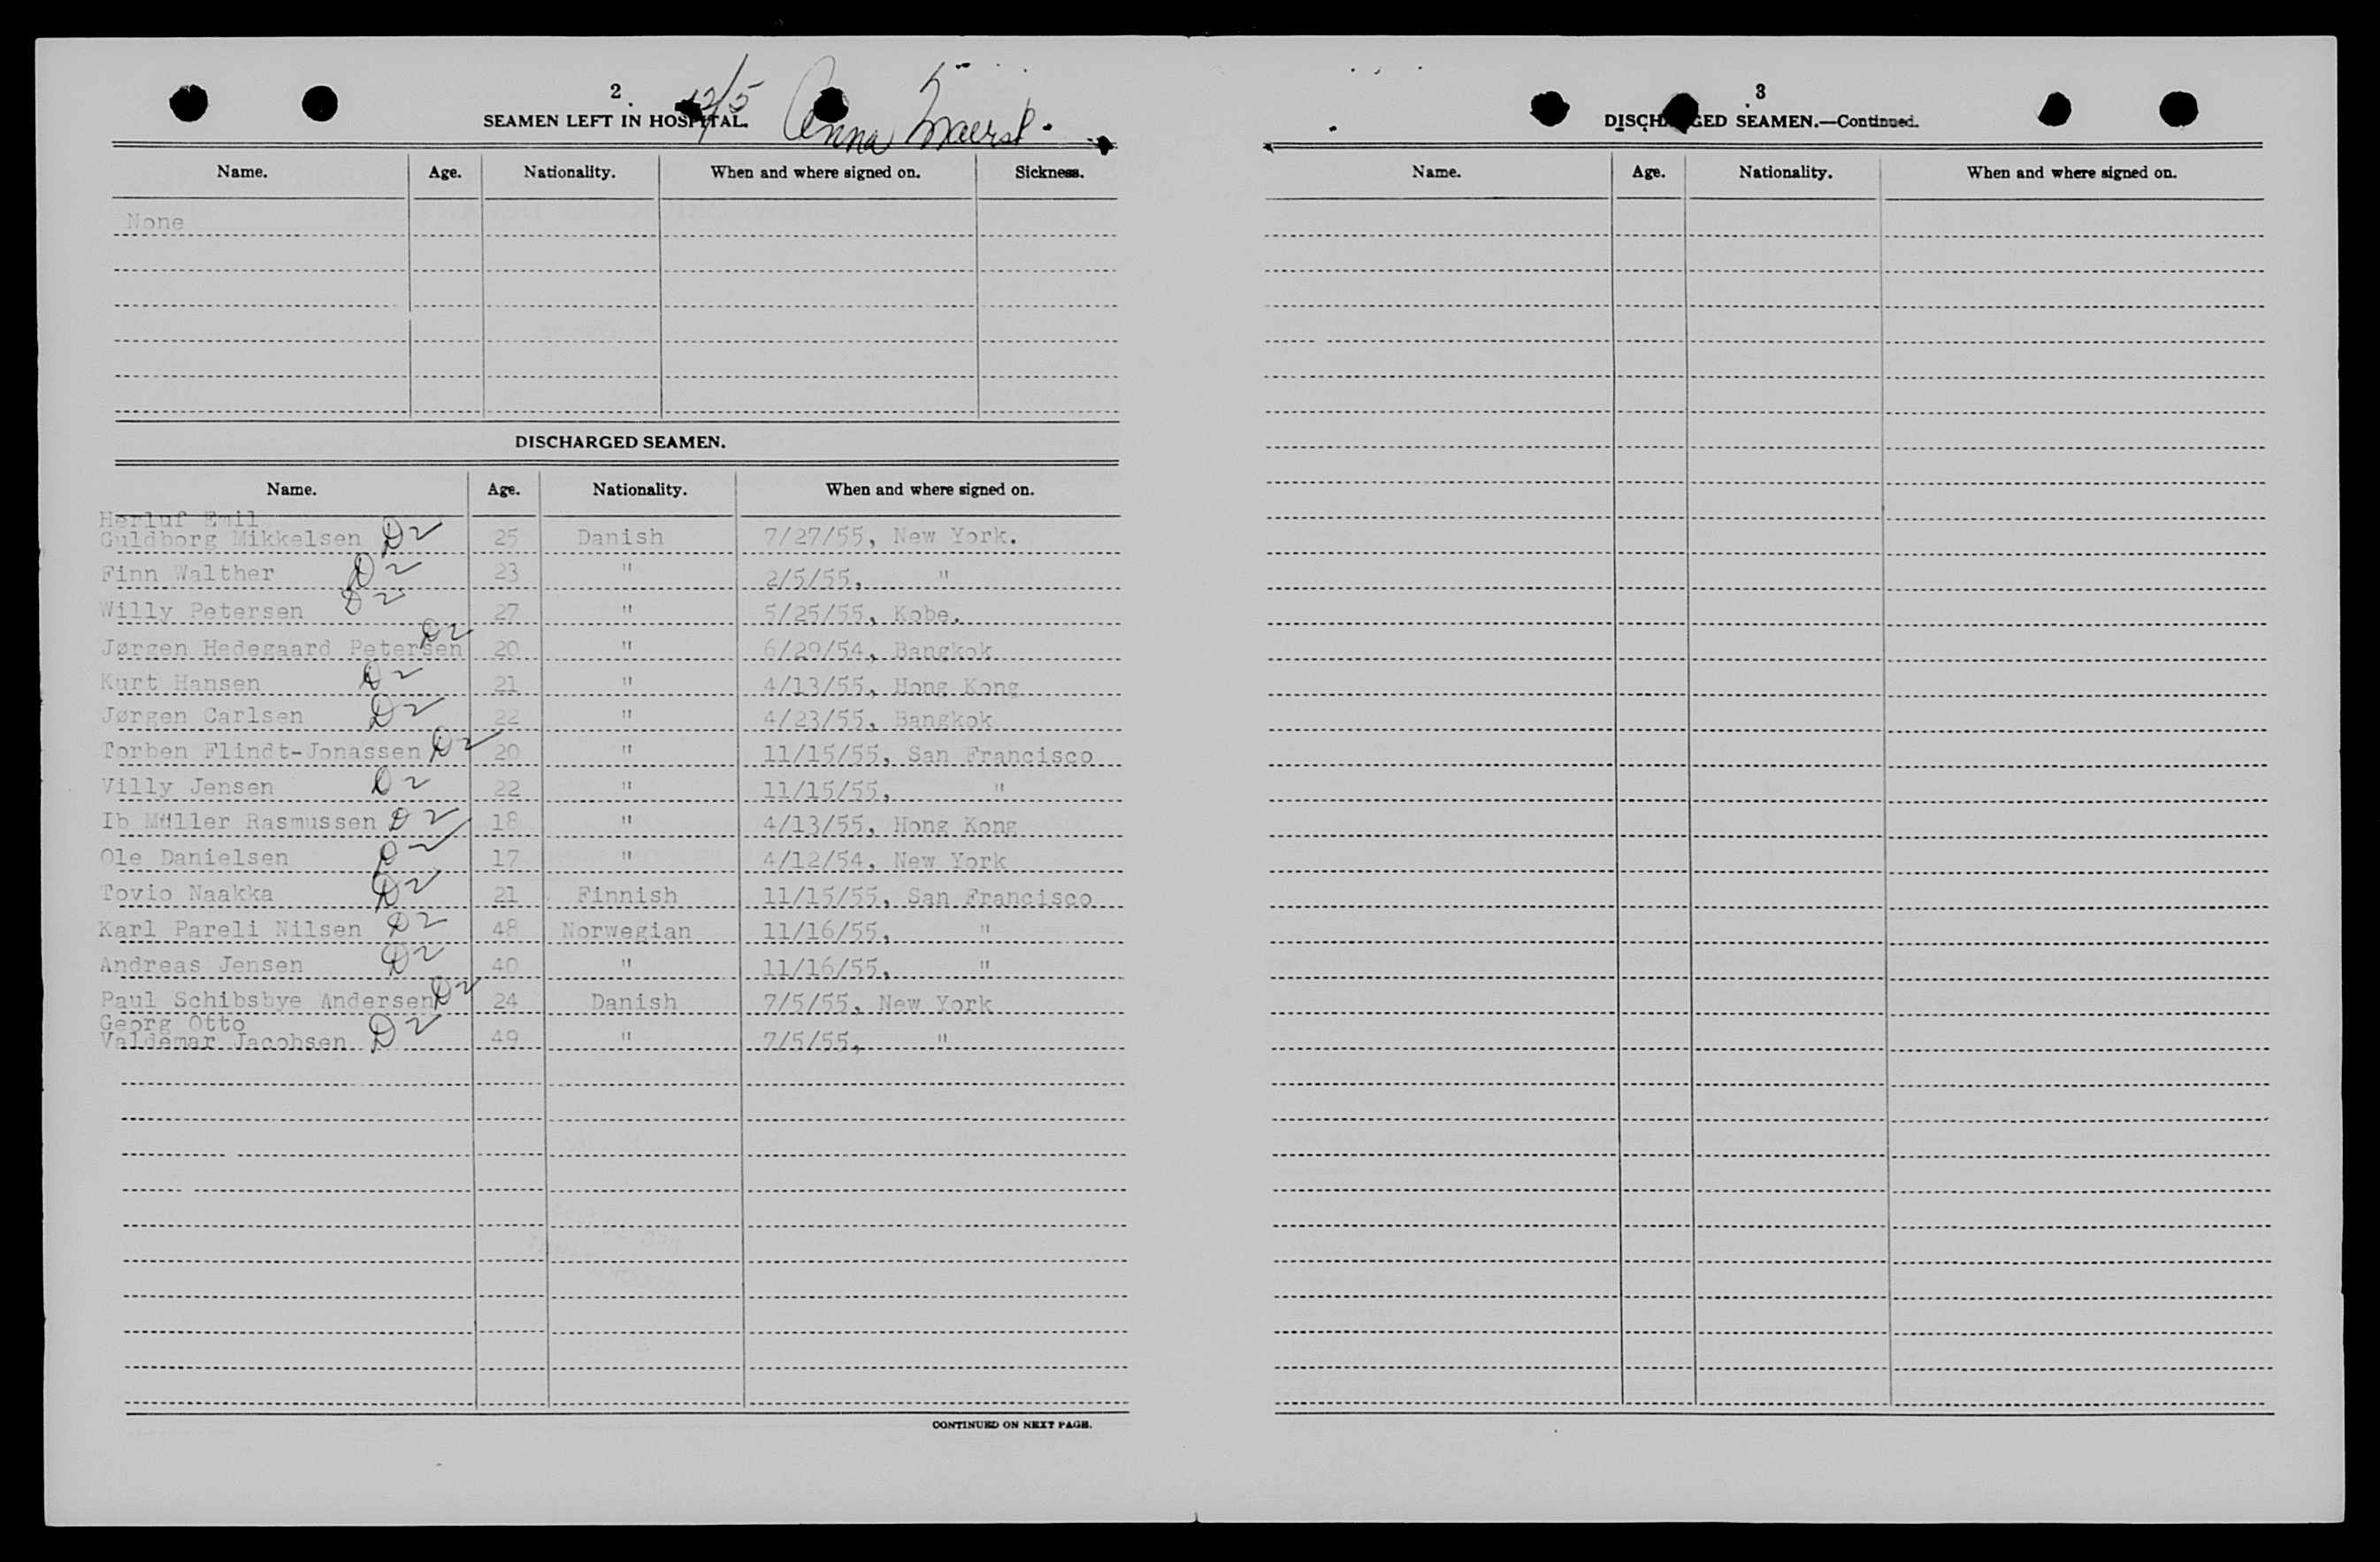 2
12/5 Anna Maersk.
SEAMEN LEFT IN HOSPITAL.
Name. Age. Nationality. When and where signed on. Sickness.
None
DISCHARGED SEAMEN.
Name. Age. Nationality. When and where signed on.
Herluf Emil
Guldborg Mikkelsen D2 25 Danish 7/27/55, New York.
Finn Walther D2 23 " 2/5/55, "
Willy Petersen D2 27 " 5/25/55, Kobe.
Jørgen Hedegaard Petersen D2 20 " 6/29/54, Bangkok
Kurt Hansen D2 21 " 4/13/55, Hong Kong
Jørgen Carlsen D2 22 " 4/23/55, Bangkok
Torben Flindt-Jonassen D2 20 " 11/15/55, San Francisco
Villy Jensen D2 22 " 11/15/55, "
Ib Müller Rasmussen D2 18 " 4/13/55, Hong Kong
Ole Danielsen D2 17 " 4/12/54, New York
Tovio Naakka D2 21 Finnish 11/15/55, San Francisco
Karl Pareli Nilsen D2 48 Norwegian 11/16/55, "
Andreas Jensen D2 40 " 11/16/55, "
Paul Schibsbye Andersen D2 24 Danish 7/5/55, New York
Georg Otto
Valdemar Jacobsen D2 49 " 7/5/55, "
CONTINUED ON NEXT PAGE.
3
DISCHARGED SEAMEN.—Continued.
Name. Age. Nationality. When and where signed on.